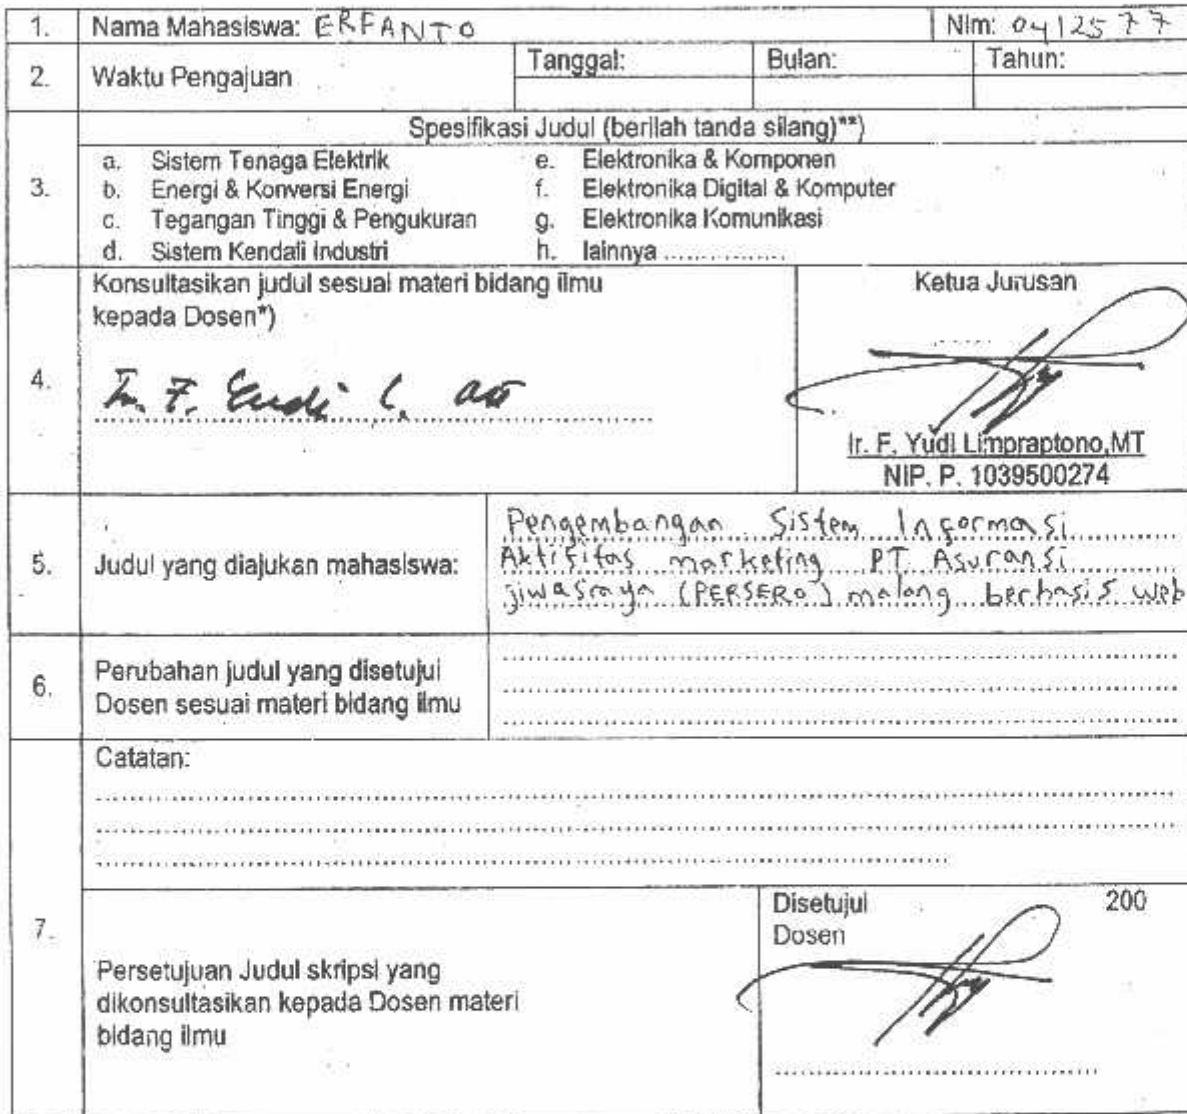 1. Nama Mahasiswa: ERFANTO Nim: 0412577
2. Waktu Pengajuan Tanggal: Bulan: Tahun:
Spesifikasi Judul (berilah tanda silang)**)
3.
a. Sistem Tenaga Elektrik e. Elektronika & Komponen
b. Energi & Konversi Energi f. Elektronika Digital & Komputer
c. Tegangan Tinggi & Pengukuran g. Elektronika Komunikasi
d. Sistem Kendali Industri h. lainnya ................
4.
Konsultasikan judul sesuai materi bidang ilmu
kepada Dosen*)
Ketua Jurusan
Ir. F. Yudi Limpraptono,MT
NIP. P. 1039500274
5. Judul yang diajukan mahasiswa:
Pengembangan Sistem Informasi
Aktifitas marketing PT Asuransi
jiwasraya (PERSERO) malang berbasis web
6.
Perubahan judul yang disetujui
Dosen sesuai materi bidang ilmu
Catatan:
7.
Persetujuan Judul skripsi yang
dikonsultasikan kepada Dosen materi
bidang ilmu
Disetujui 200
Dosen